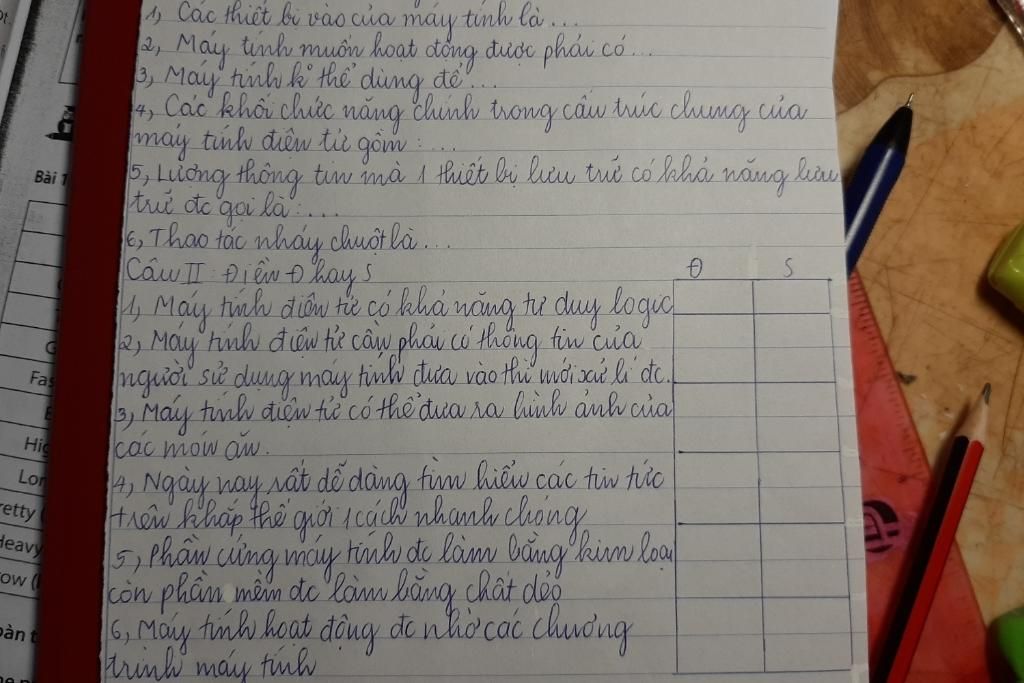 1, Các thiết bị vào của máy tính là...
2, Máy tính muốn hoạt động được phải có...
3, Máy tính k° thể dùng để...
4, Các khối chức năng chính trong cấu trúc chung của
máy tính điện tử gồm:...
5, Lượng thông tin mà 1 thiết bị lưu trữ có khả năng lưu
trữ đc gọi là:...
6, Thao tác nháy chuột là...
Câu II: Điền Đ hay S
Đ S
1, Máy tính điện tử có khả năng tư duy logic
2, Máy tính điện tử cần phải có thông tin của
người sử dụng máy tính đưa vào thì mới xử lí đc.
3, Máy tính điện tử có thể đưa ra hình ảnh của
các món ăn.
4, Ngày nay rất dễ dàng tìm hiểu các tin tức
trên khắp thế giới 1 cách nhanh chóng
5, Phần cứng máy tính đc làm bằng kim loại
còn phần mềm đc làm bằng chất dẻo
6, Máy tính hoạt động đc nhờ các chương
trình máy tính
Bài 1
Fas
Hig
Lon
retty
Heavy
ow (